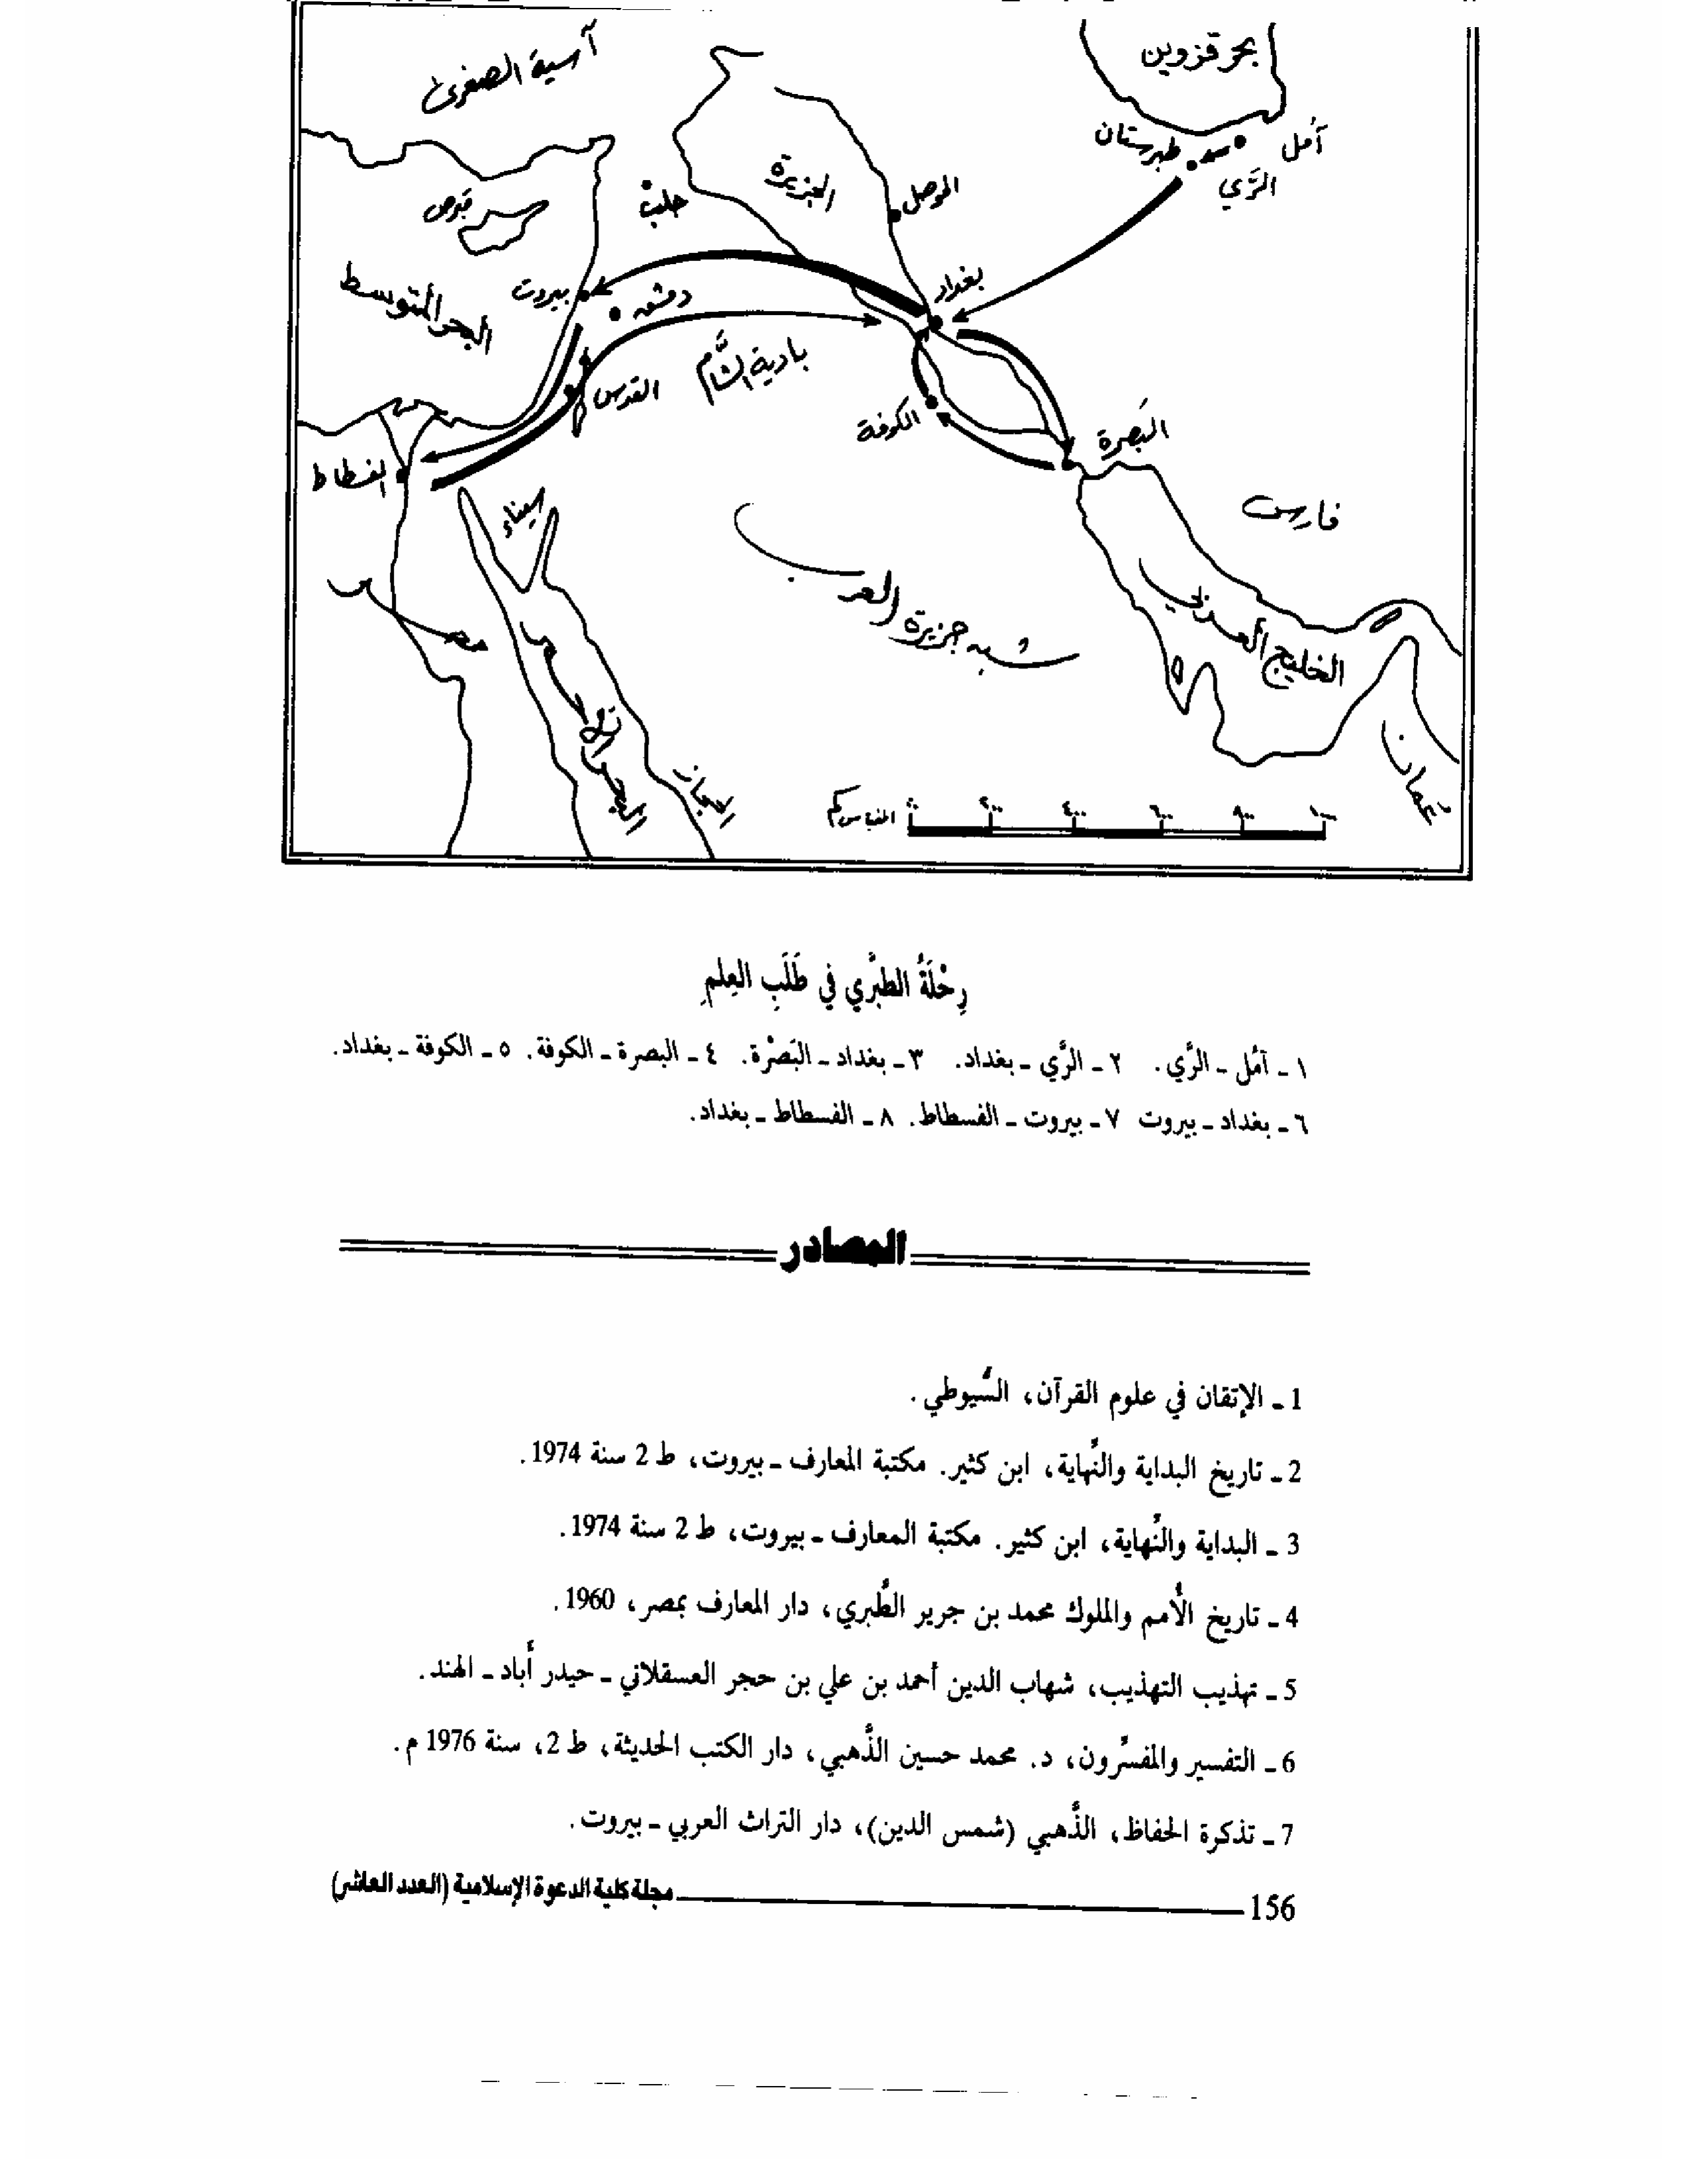 آسية الصغرى
بحر قزوين
طبرستان
آمل
الرَّي
قبرص
حلب
الجزيرة
الموصل
البحر المتوسط
بيروت
دمشق
بغداد
بادية الشَّام
القدس
الكوفة
البَصرة
الفسطاط
سيناء
فارس
مصر
شبه جزيرة العرب
الخليج العربي
البحر الأحمر
الحجاز
عُمان
المقياس كم ٠ ٢٠٠ ٤٠٠ ٦٠٠ ٨٠٠ ١٠٠٠
رِحْلَةُ الطبَّري في طَلَبِ العِلمِ
١ ـ آمُل ـ الرَّي. ٢ ـ الرَّي ـ بغداد. ٣ ـ بغداد ـ البَصْرة. ٤ ـ البصرة ـ الكوفة. ٥ ـ الكوفة ـ بغداد.
٦ ـ بغداد ـ بيروت ٧ ـ بيروت ـ الفسطاط. ٨ ـ الفسطاط ـ بغداد.
المصادر
1 ـ الإتقان في علوم القرآن، السُّيوطي.
2 ـ تاريخ البداية والنُّهاية، ابن كثير. مكتبة المعارف ـ بيروت، ط 2 سنة 1974.
3 ـ البداية والنُّهاية، ابن كثير. مكتبة المعارف ـ بيروت، ط 2 سنة 1974.
4 ـ تاريخ الأُمم والملوك محمد بن جرير الطُّبري، دار المعارف بمصر، 1960.
5 ـ تهذيب التهذيب، شهاب الدين أحمد بن علي بن حجر العسقلاني ـ حيدر أباد ـ الهند.
6 ـ التفسير والمفسِّرون، د. محمد حسين الذَّهبي، دار الكتب الحديثة، ط 2، سنة 1976 م.
7 ـ تذكرة الحفاظ، الذَّهبي (شمس الدين)، دار التراث العربي ـ بيروت.
156 مجلة كلية الدعوة الإسلامية (العدد العاشر)